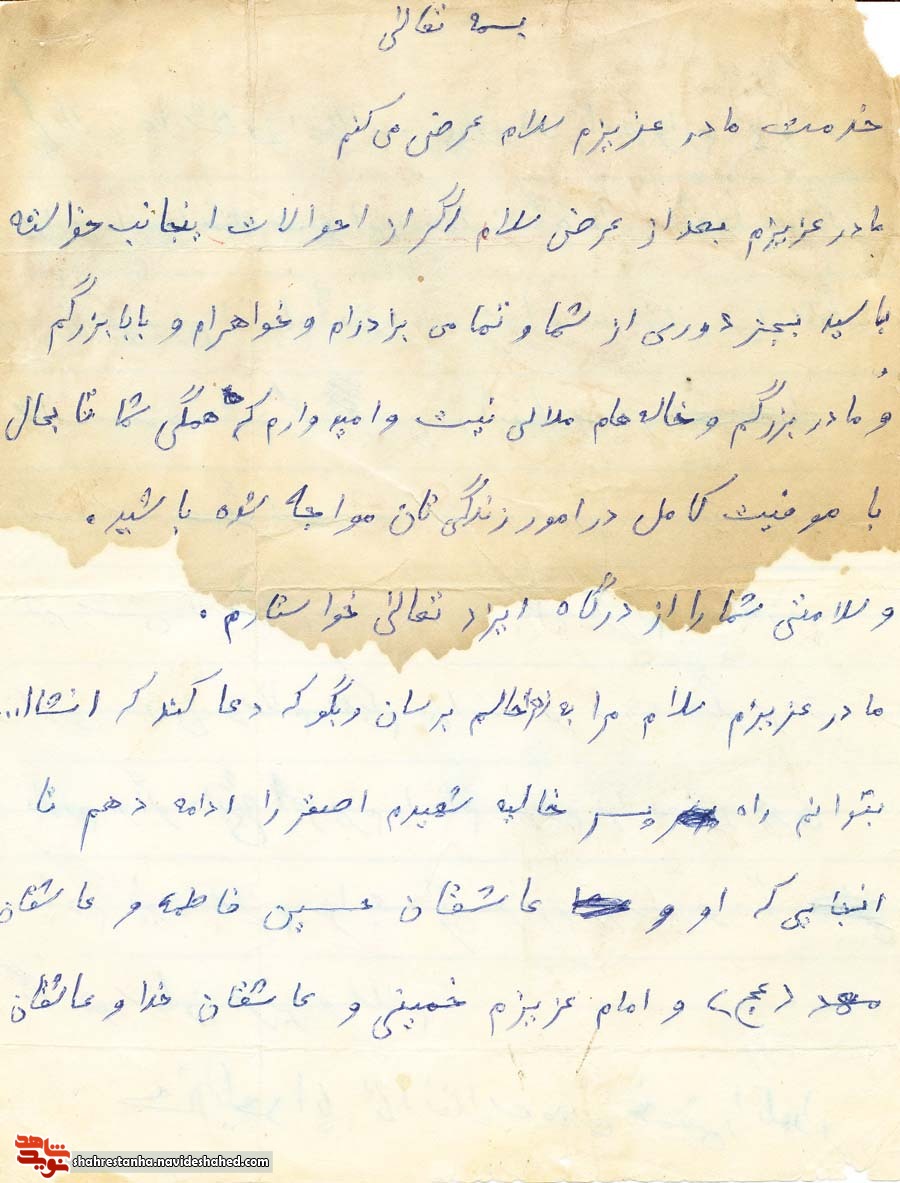 بسمه تعالی
خدمت مادر عزیزم سلام عرض می کنم
مادر عزیزم بعد از عرض سلام اگر از احوالات اینجانب خواسته
باشید بجز دوری از شما و تمامی برادرام و خواهرام و بابابزرگم
و مادربزرگم و خاله هام ملالی نیست و امیدوارم که همگی شما تا بحال
با موفیت کامل در امور زندگی تان مواجه شده باشید.
و سلامتی شما را از درگاه ایزد تعالی خواستارم.
مادر عزیزم سلام مرا به خالم برسان و بگو که دعا کند که انشاا...
بتوانم راه پسر خالیه شهیدم اصغر را ادامه دهم تا
انجایی که او و عاشقان حسین فاطمه و عاشقان
مهد (عج) و امام عزیزم خمینی و عاشقان خدا و عاشقان
نوید شاهد
shahrestanha.navideshahed.com